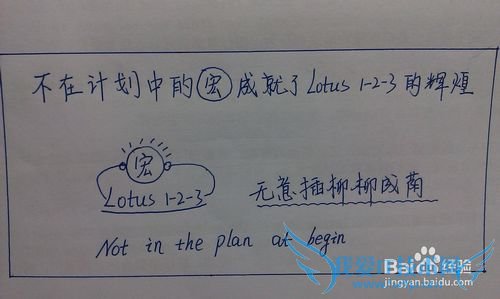 不在计划中的宏成就了Lotus 1-2-3的辉煌
宏
Lotus 1-2-3
无意插柳柳成荫
Not in the plan at begin
Baidu经验
jingyan.baidu.com